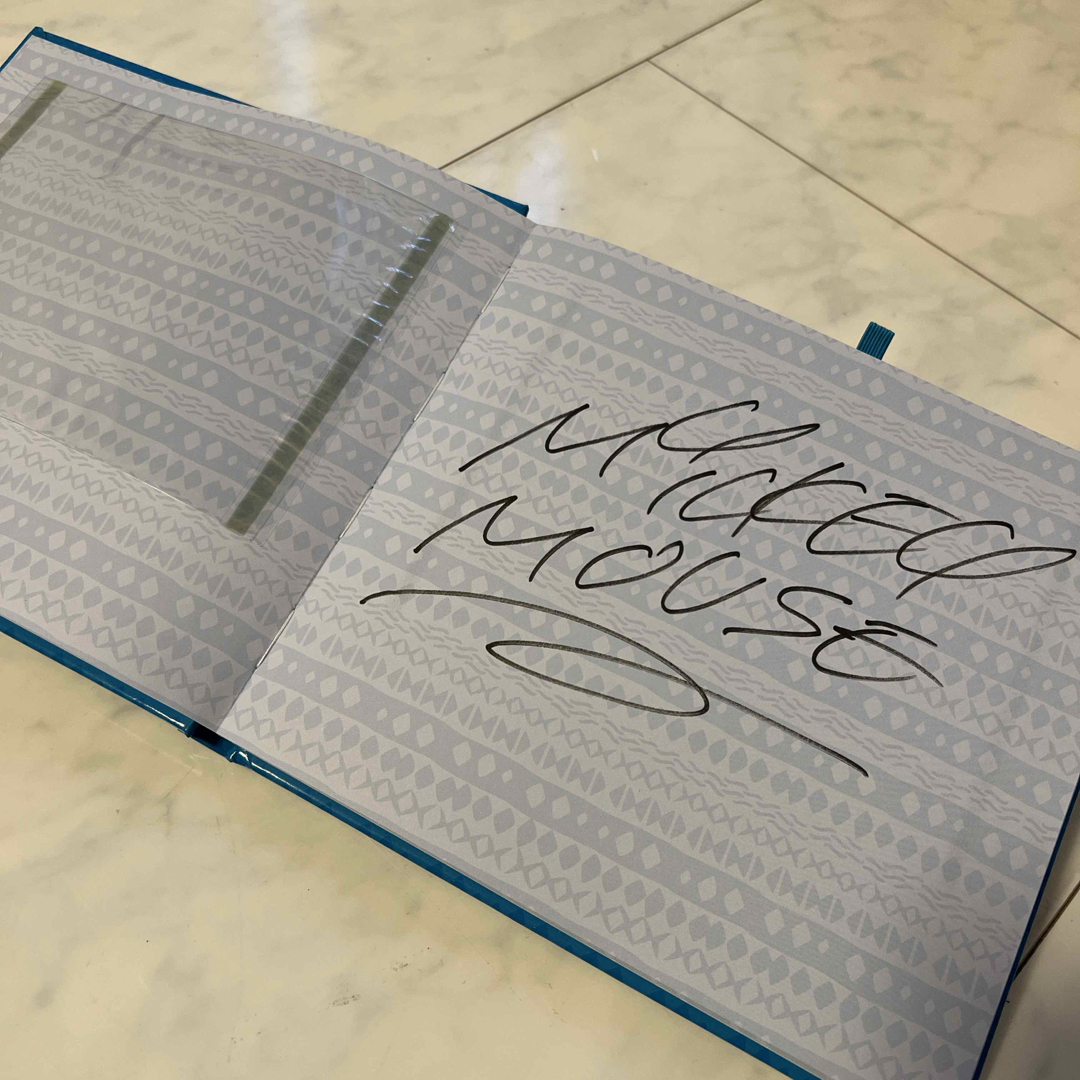 MICKEY
MOUSE